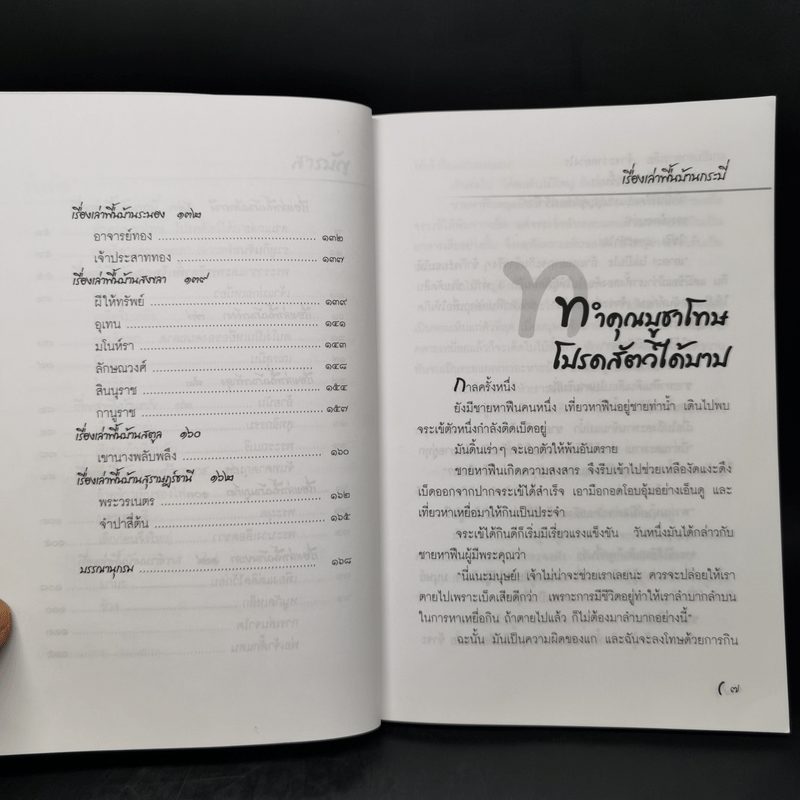 เรื่องเล่าพื้นบ้านระนอง ๑๓๒
อาจารย์ทอง ๑๓๒
เจ้าประสาททอง ๑๓๗
เรื่องเล่าพื้นบ้านสงขลา ๑๓๙
ผีให้ทรัพย์ ๑๓๙
อุเทน ๑๔๑
มโนห์รา ๑๔๓
ลักษณวงศ์ ๑๔๘
สินนุราช ๑๕๔
กานูราช ๑๕๗
เรื่องเล่าพื้นบ้านสตูล ๑๖๐
เขานางพลับพลึง ๑๖๐
เรื่องเล่าพื้นบ้านสุราษฎร์ธานี ๑๖๒
พระวรเนตร ๑๖๒
จำปาสี่ต้น ๑๖๕
บรรณานุกรม ๑๖๘
เรื่องเล่าพื้นบ้านกระบี่
ทำคุณบูชาโทษ
โปรดสัตว์ได้บาป
กาลครั้งหนึ่ง
ยังมีชายหาฟืนคนหนึ่ง เที่ยวหาฟืนอยู่ชายท่าน้ำ เดินไปพบ
จระเข้ตัวหนึ่งกำลังติดเบ็ดอยู่
มันดิ้นเร่าๆ จะเอาตัวให้พ้นอันตราย
ชายหาฟืนเกิดความสงสาร จึงรีบเข้าไปช่วยเหลืองัดแงะดึง
เบ็ดออกจากปากจระเข้ได้สำเร็จ เอามือกอดโอบอุ้มอย่างเอ็นดู และ
เที่ยวหาเหยื่อมาให้กินเป็นประจำ
จระเข้ได้กินดีก็เริ่มมีเรี่ยวแรงแข็งขัน วันหนึ่งมันได้กล่าวกับ
ชายหาฟืนผู้มีพระคุณว่า
"นี่แนะมนุษย์! เจ้าไม่น่าจะช่วยเราเลยนะ ควรจะปล่อยให้เรา
ตายไปเพราะเบ็ดเสียดีกว่า เพราะการมีชีวิตอยู่ทำให้เราลำบากลำบน
ในการหาเหยื่อกิน ถ้าตายไปแล้ว ก็ไม่ต้องมาลำบากอย่างนี้"
ฉะนั้น มันเป็นความผิดของแก และฉันจะลงโทษด้วยการกิน
๗